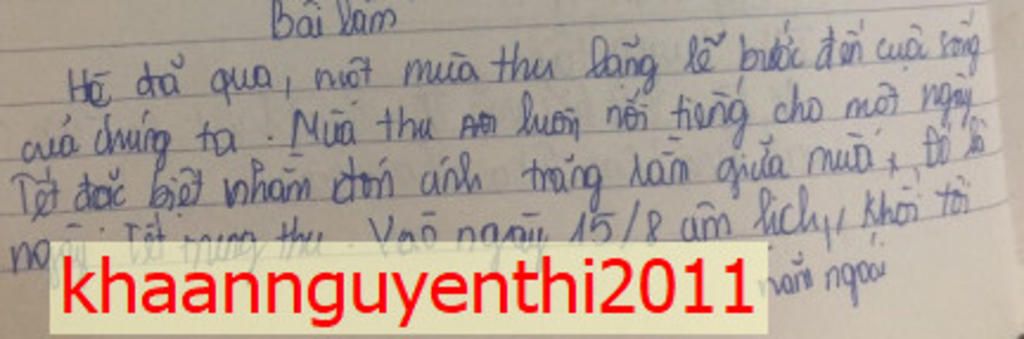 Bài làm
Hè đã qua, một mùa thu lẵng lẽ bước đến cuộc sống
của chúng ta. Mùa thu luôn nổi tiếng cho một ngày
Tết đặc biệt nhằm đón ánh trăng rằm giữa mùa, Đó là
ngày Tết trung thu. Vào ngày 15/8 âm lịch, khối tôi
khaannguyenthi2011
năm ngoái